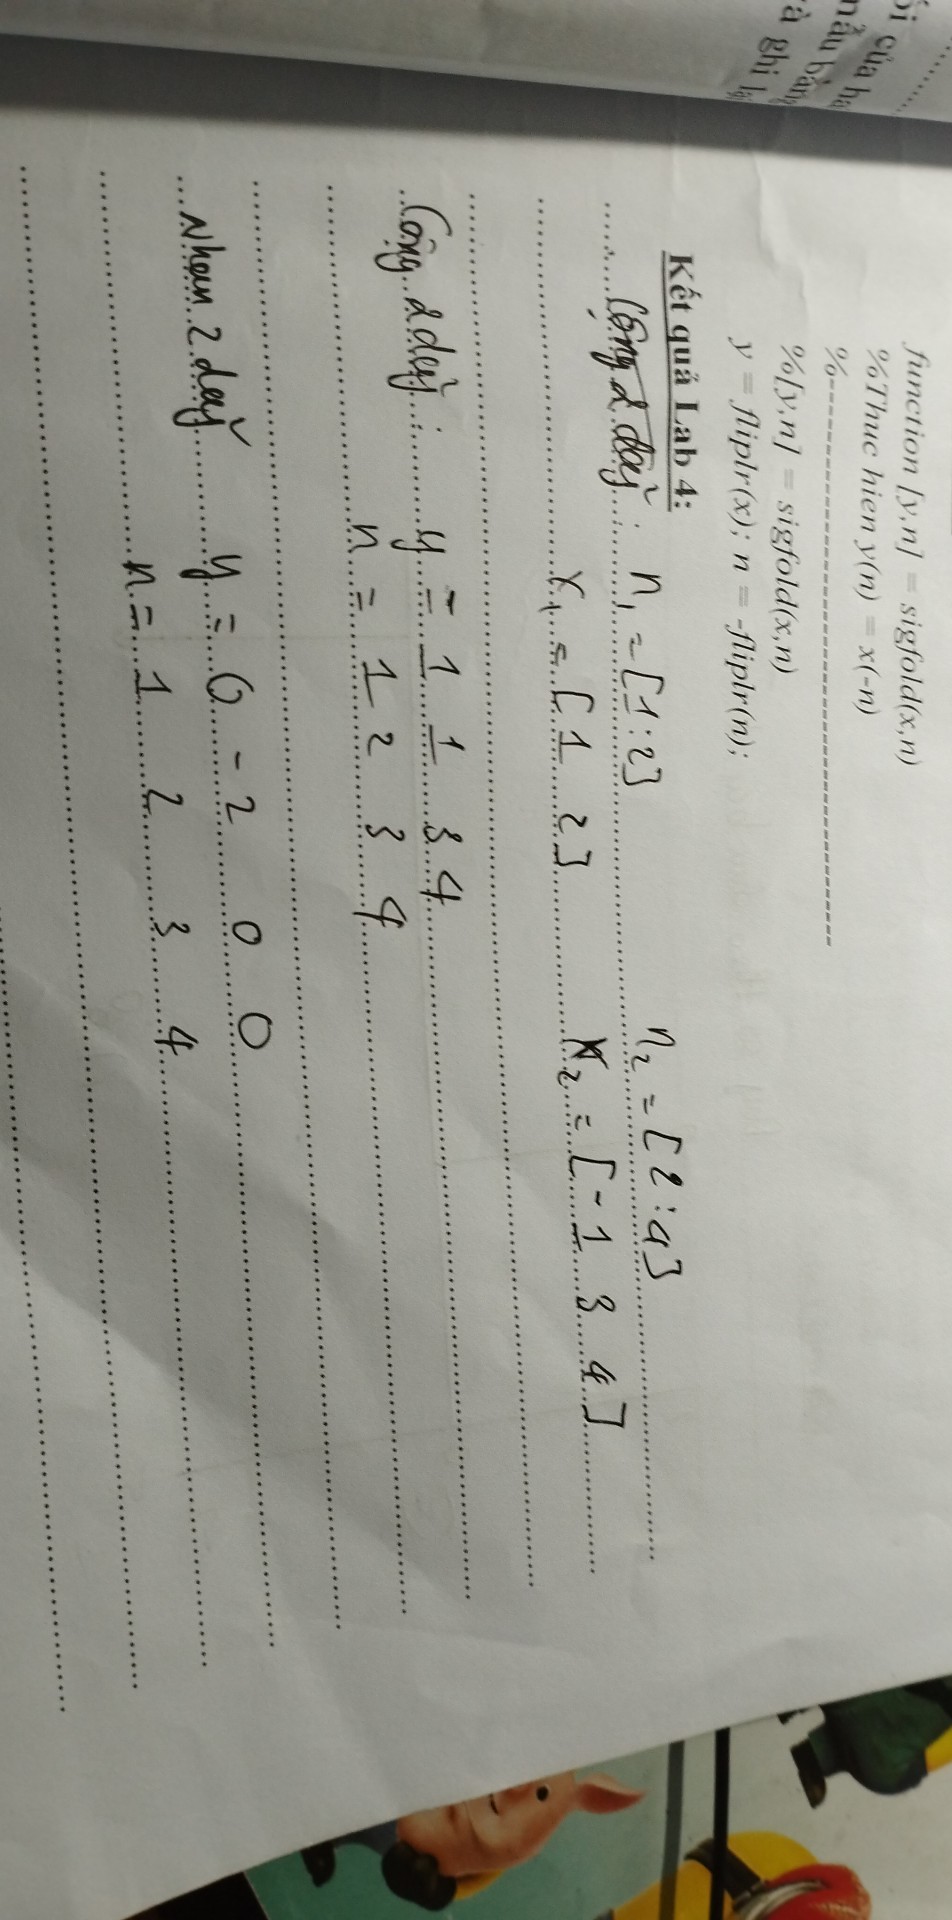 ối của ha
mẫu bằng
và ghi lại
function [y,n] = sigfold(x,n)
%Thuc hien y(n) = x(-n)
%--------------------------------------------
%[y,n] = sigfold(x,n)
y = fliplr(x); n = -fliplr(n);
Kết quả Lab 4:
Cộng 2 dãy : n₁ = [1:2] n₂ = [2:4]
x₁ = [1 2] x₂ = [-1 3 4]
Cộng 2 dãy : y = 1 1 3 4
n = 1 2 3 4
Nhan 2 dãy y = 0 -2 0 0
n = 1 2 3 4